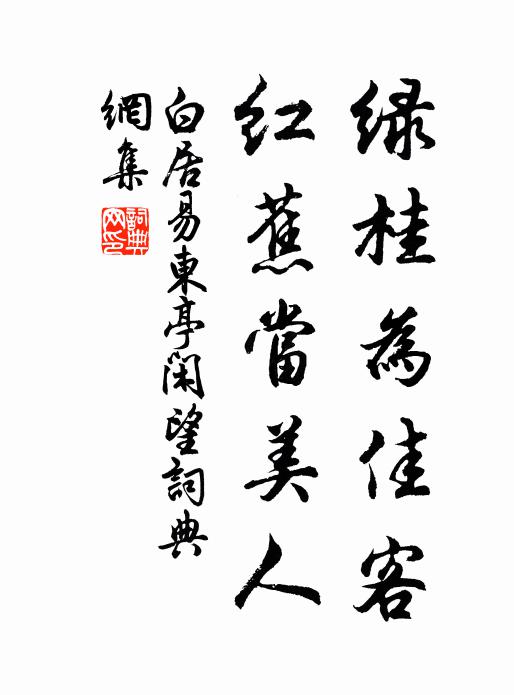 绿桂為佳客
紅蕉當美人
白居易東亭閑望詞典
網集
詞典
网印